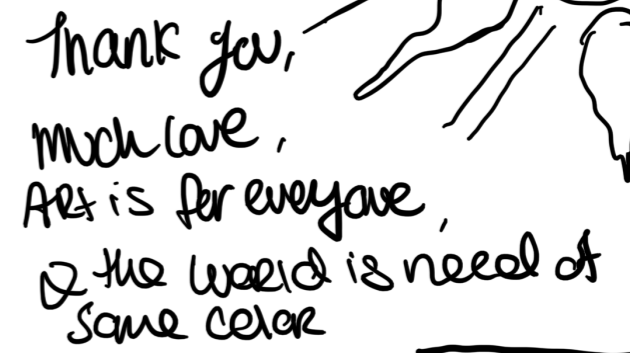 Thank you,
much love,
ARt is for everyone,
& the world is need of
some color